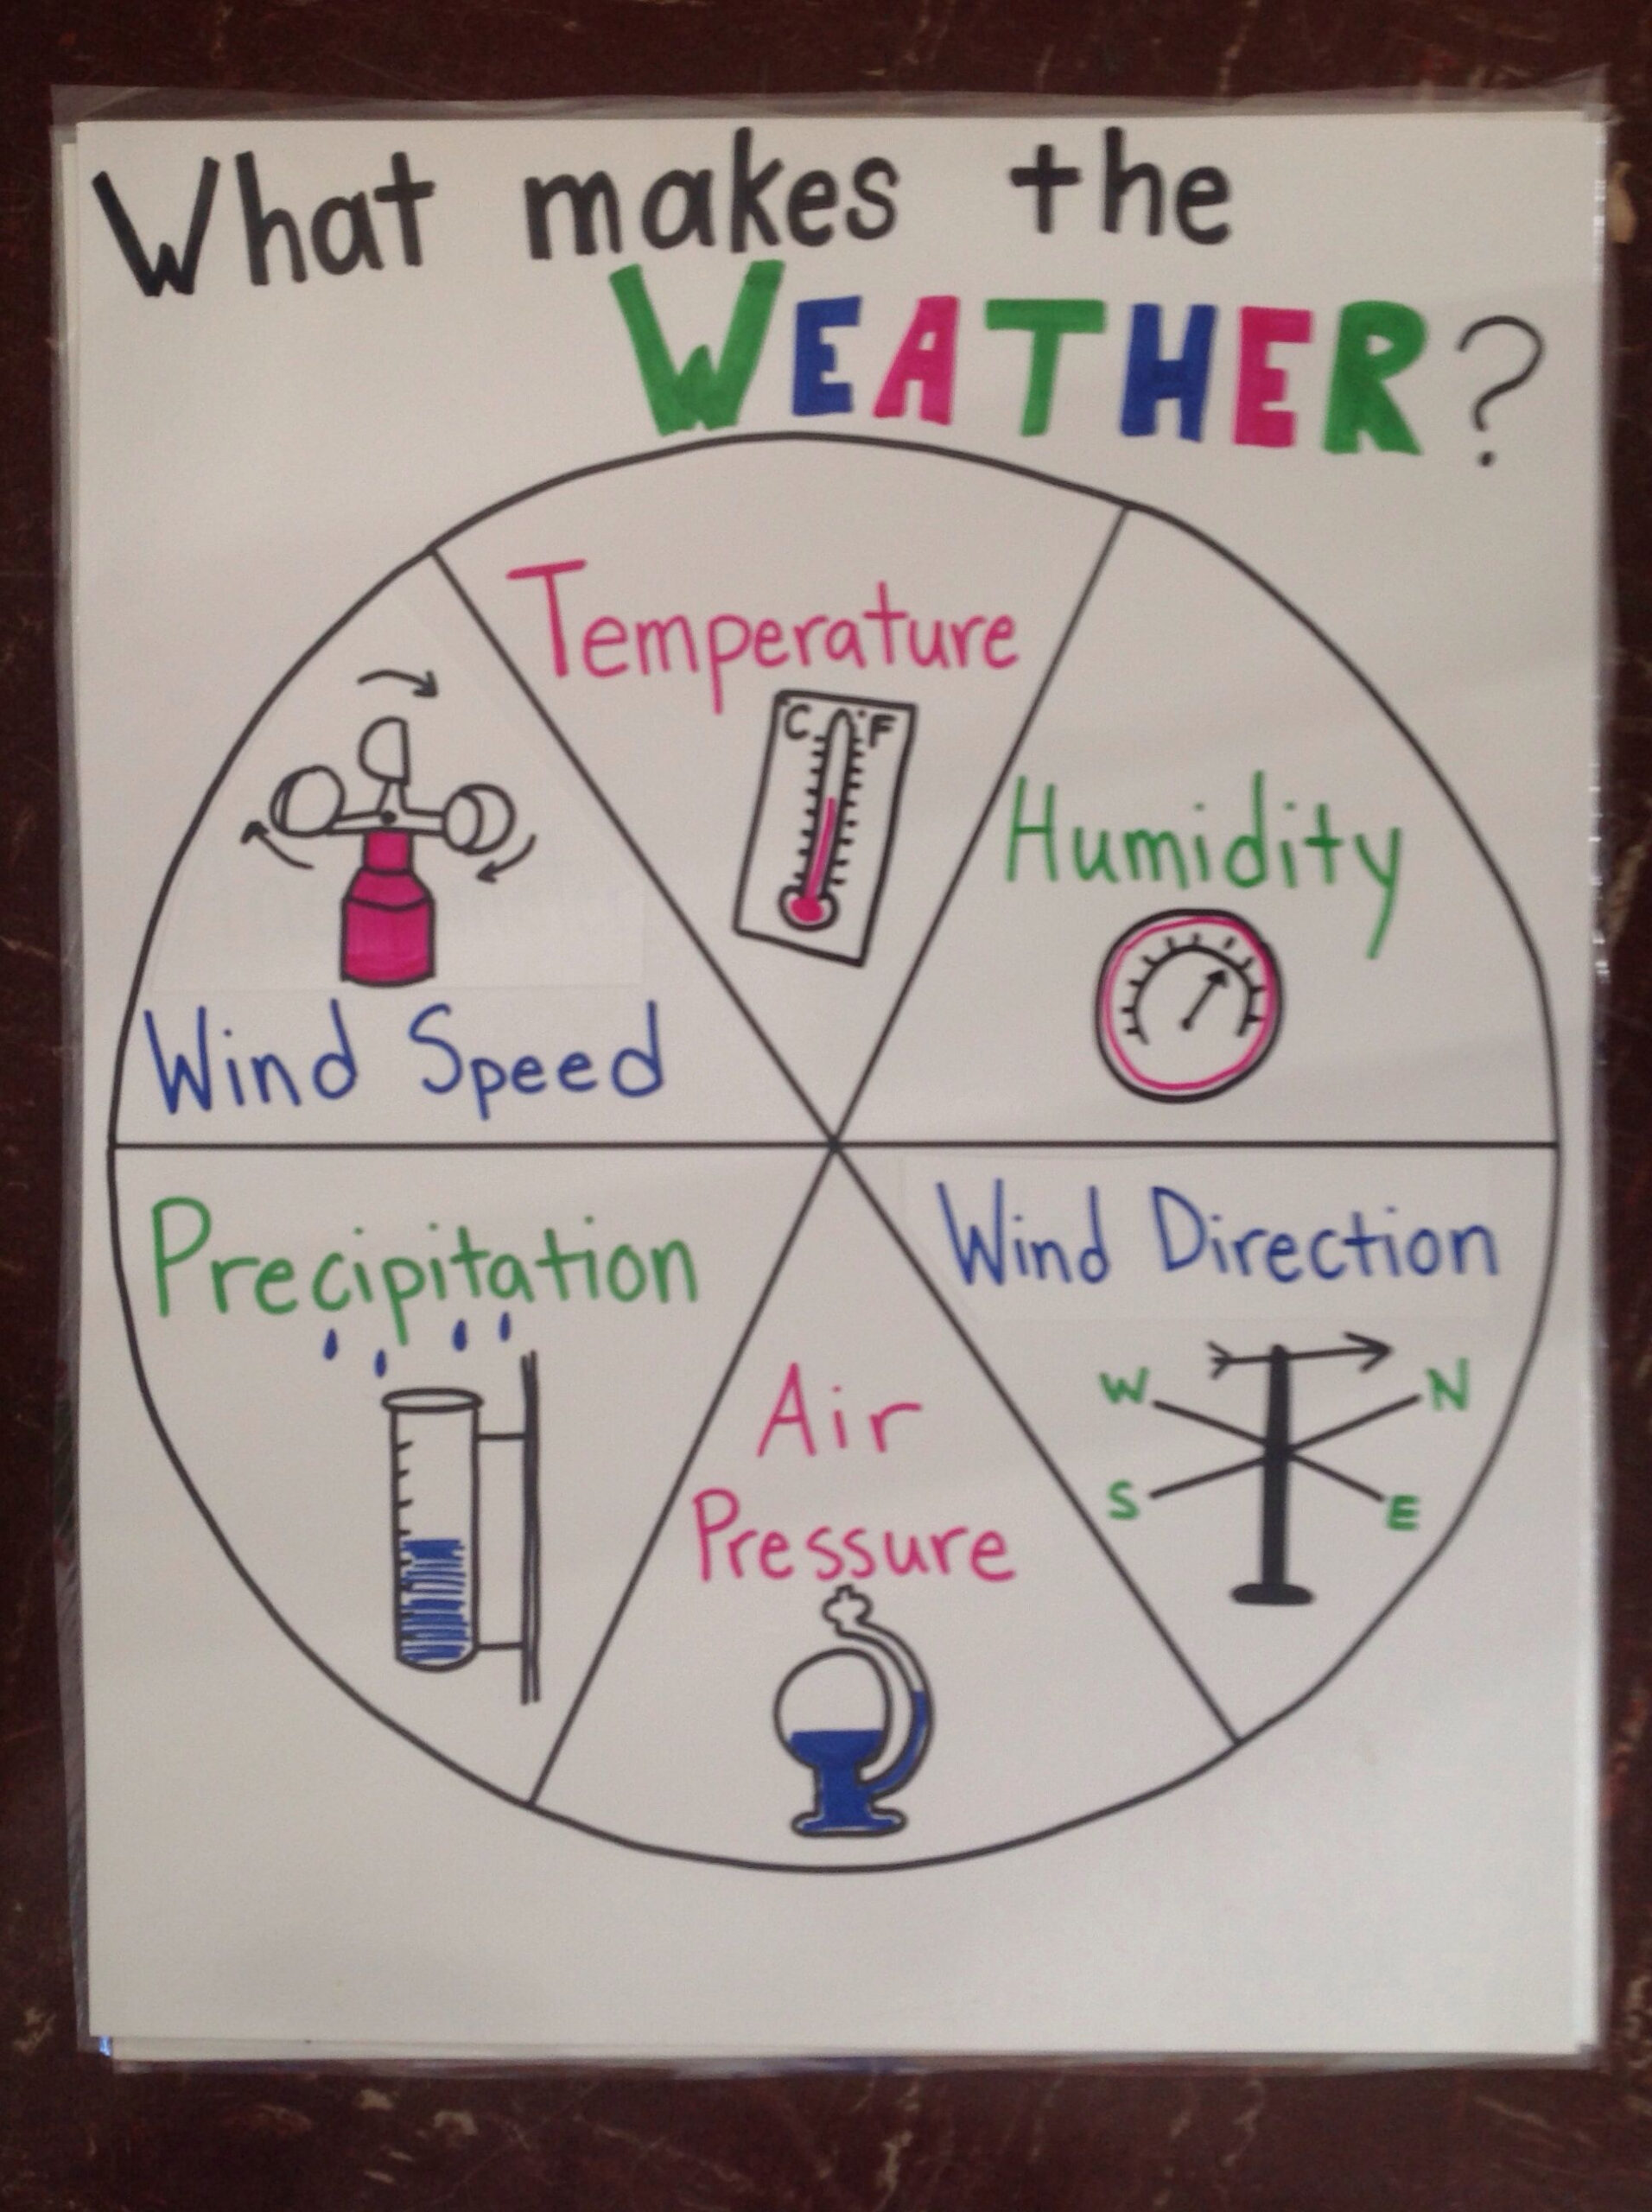 What makes the
WEATHER?
Temperature
C °F
Humidity
Wind Speed
Precipitation
Wind Direction
W N
S E
Air
Pressure